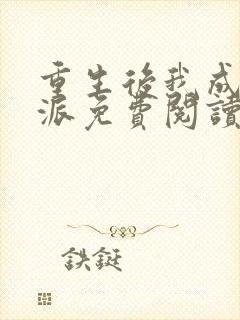 重生後我成
派免費閱讀
鉄鋌